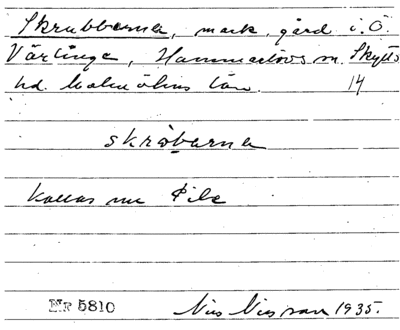 Skrubbarna, mark, gård i Ö.
Värlinge, Hammarlövs sn. Skytts
hd. Malmöhus län. 14
skråbarna
Kallas nu Pile
Nr 5810 Nils Nilsson 1935.